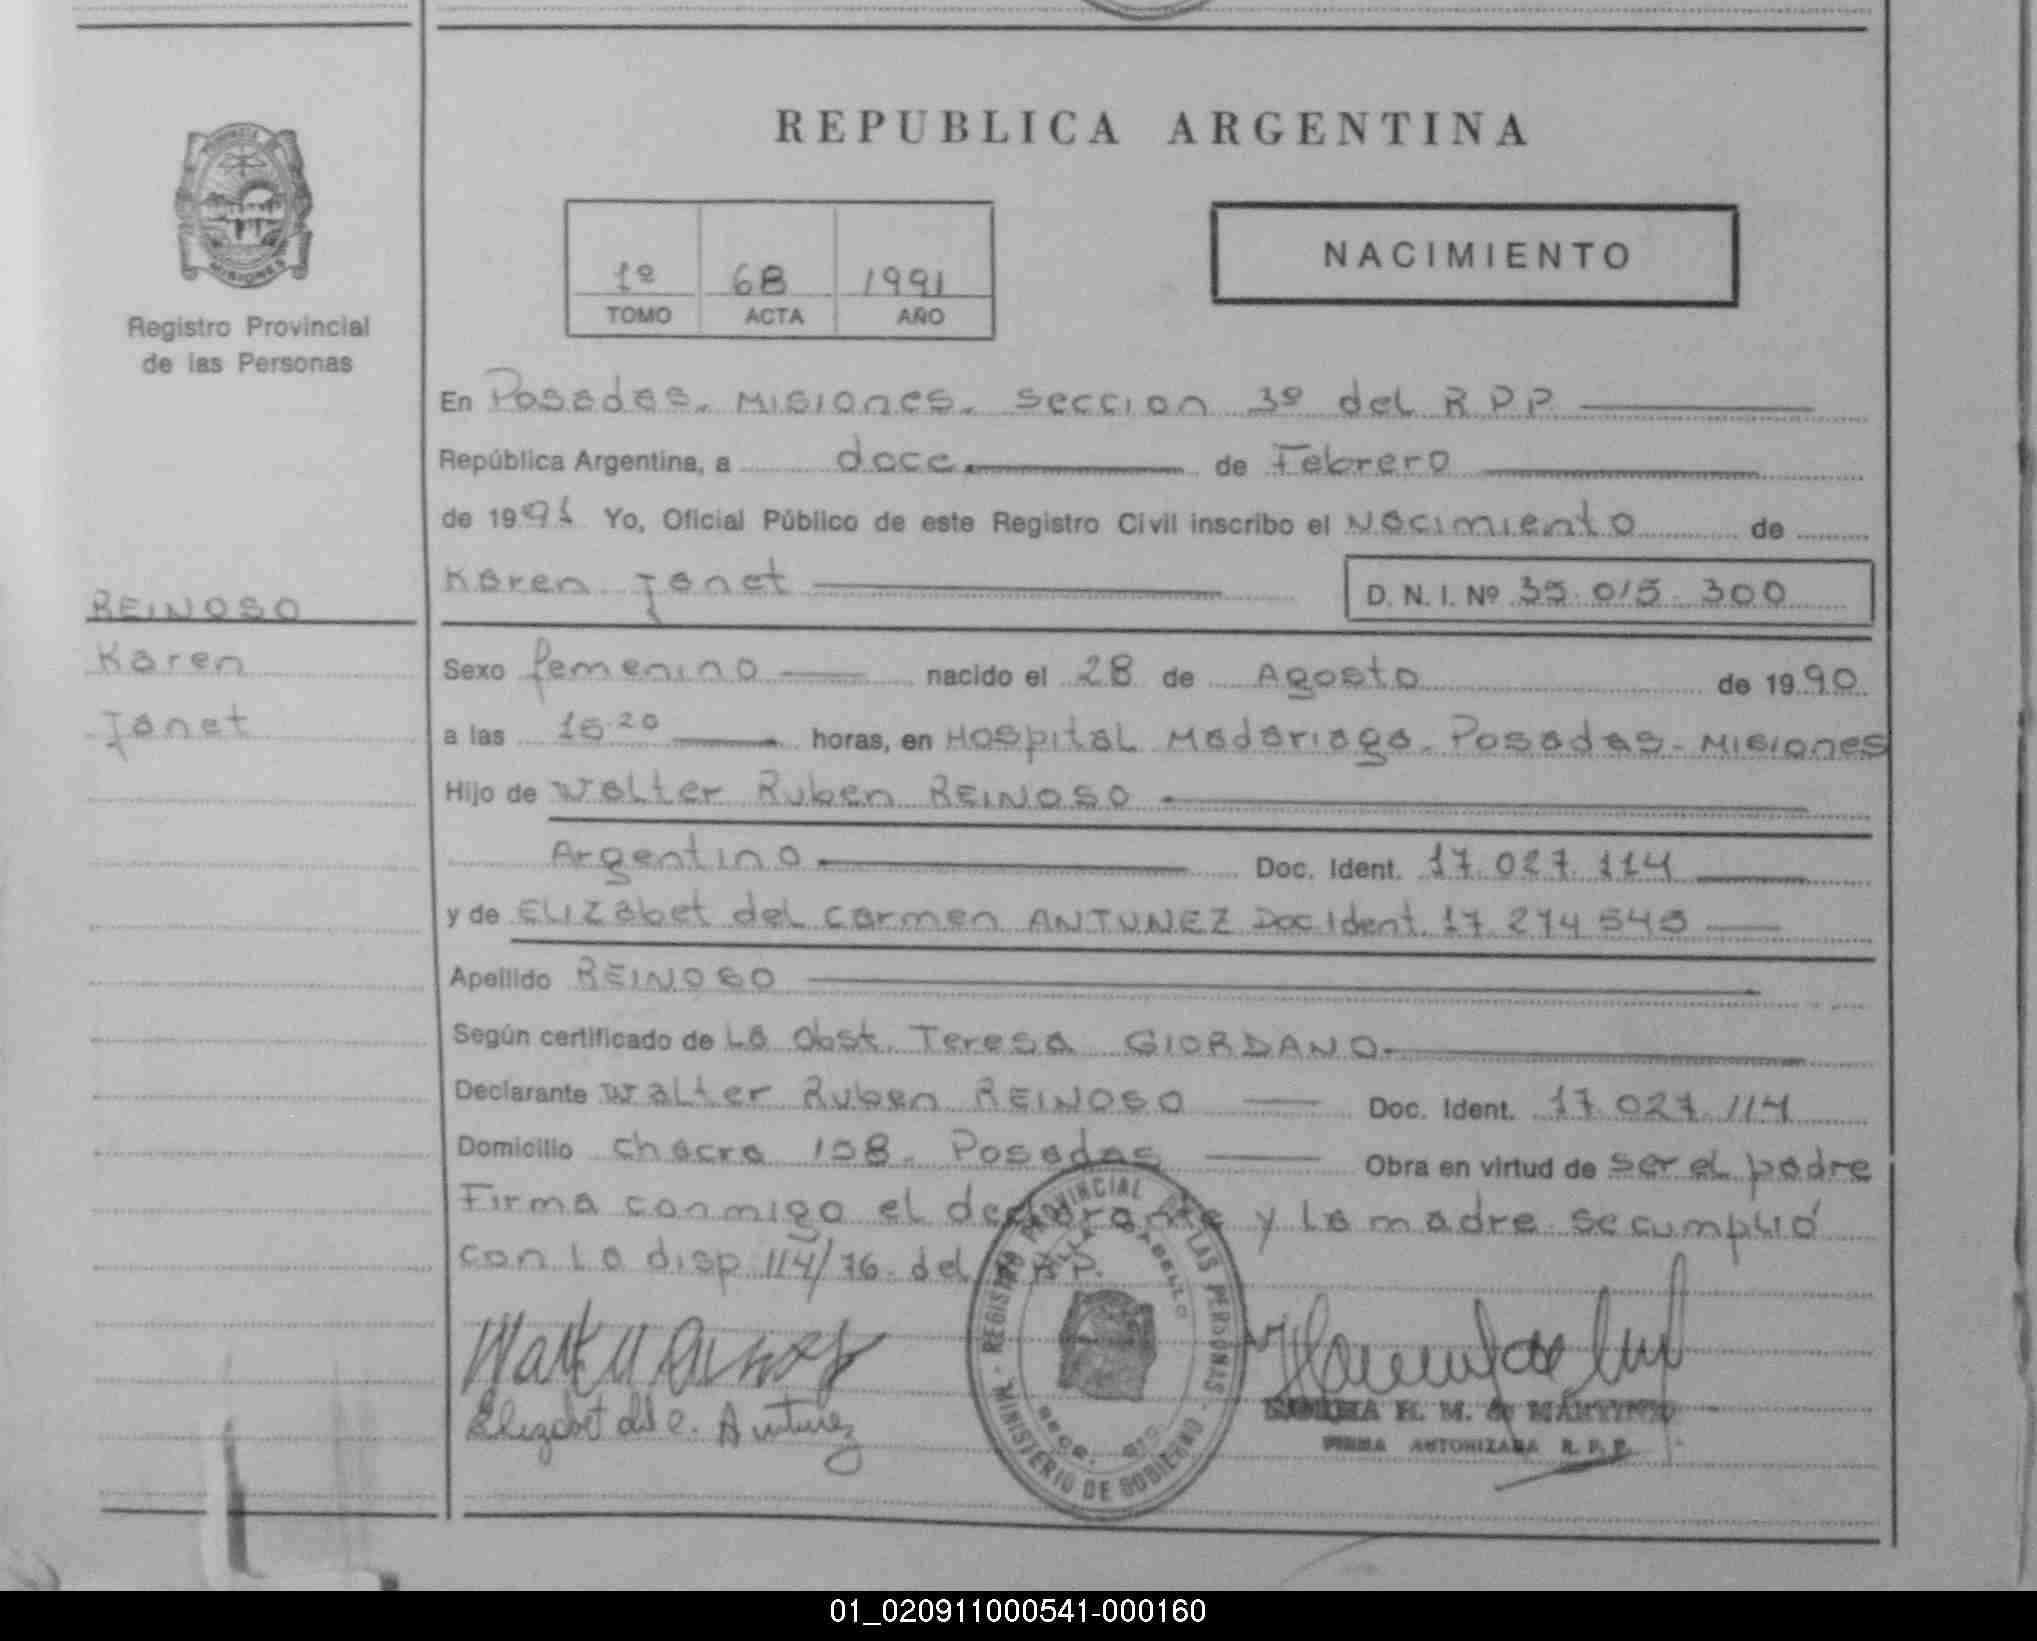 REPUBLICA ARGENTINA
MISIONES
Registro Provincial
de las Personas
1º 68 1991
TOMO ACTA AÑO
NACIMIENTO
En Posadas. Misiones. Seccion 3º del R.P.P.
República Argentina, a doce de Febrero
de 1991 Yo, Oficial Público de este Registro Civil inscribo el Nacimiento de
Karen Janet D. N. I. Nº 35.015.300
REINOSO
Karen
Janet
Sexo femenino nacido el 28 de Agosto de 1990
a las 15.20 horas, en Hospital Madariaga. Posadas - Misiones
Hijo de Walter Ruben REINOSO
Argentino Doc. Ident. 17.027.114
y de Elizabet del Carmen ANTUNEZ Doc Ident. 17.274.545
Apellido REINOSO
Según certificado de La Obst. Teresa GIORDANO.
Declarante Walter Ruben REINOSO Doc. Ident. 17.027.114
Domicilio chacra 108. Posadas Obra en virtud de ser el padre
Firma conmigo el declarante y la madre se cumplió
con la disp 114/76 del R.P.P.
REGISTRO PROVINCIAL DE LAS PERSONAS
MINISTERIO DE GOBIERNO
Elizabet del C. Antunez
H. M. de MARTINEZ
FIRMA AUTORIZADA R. P. P.
01_020911000541-000160